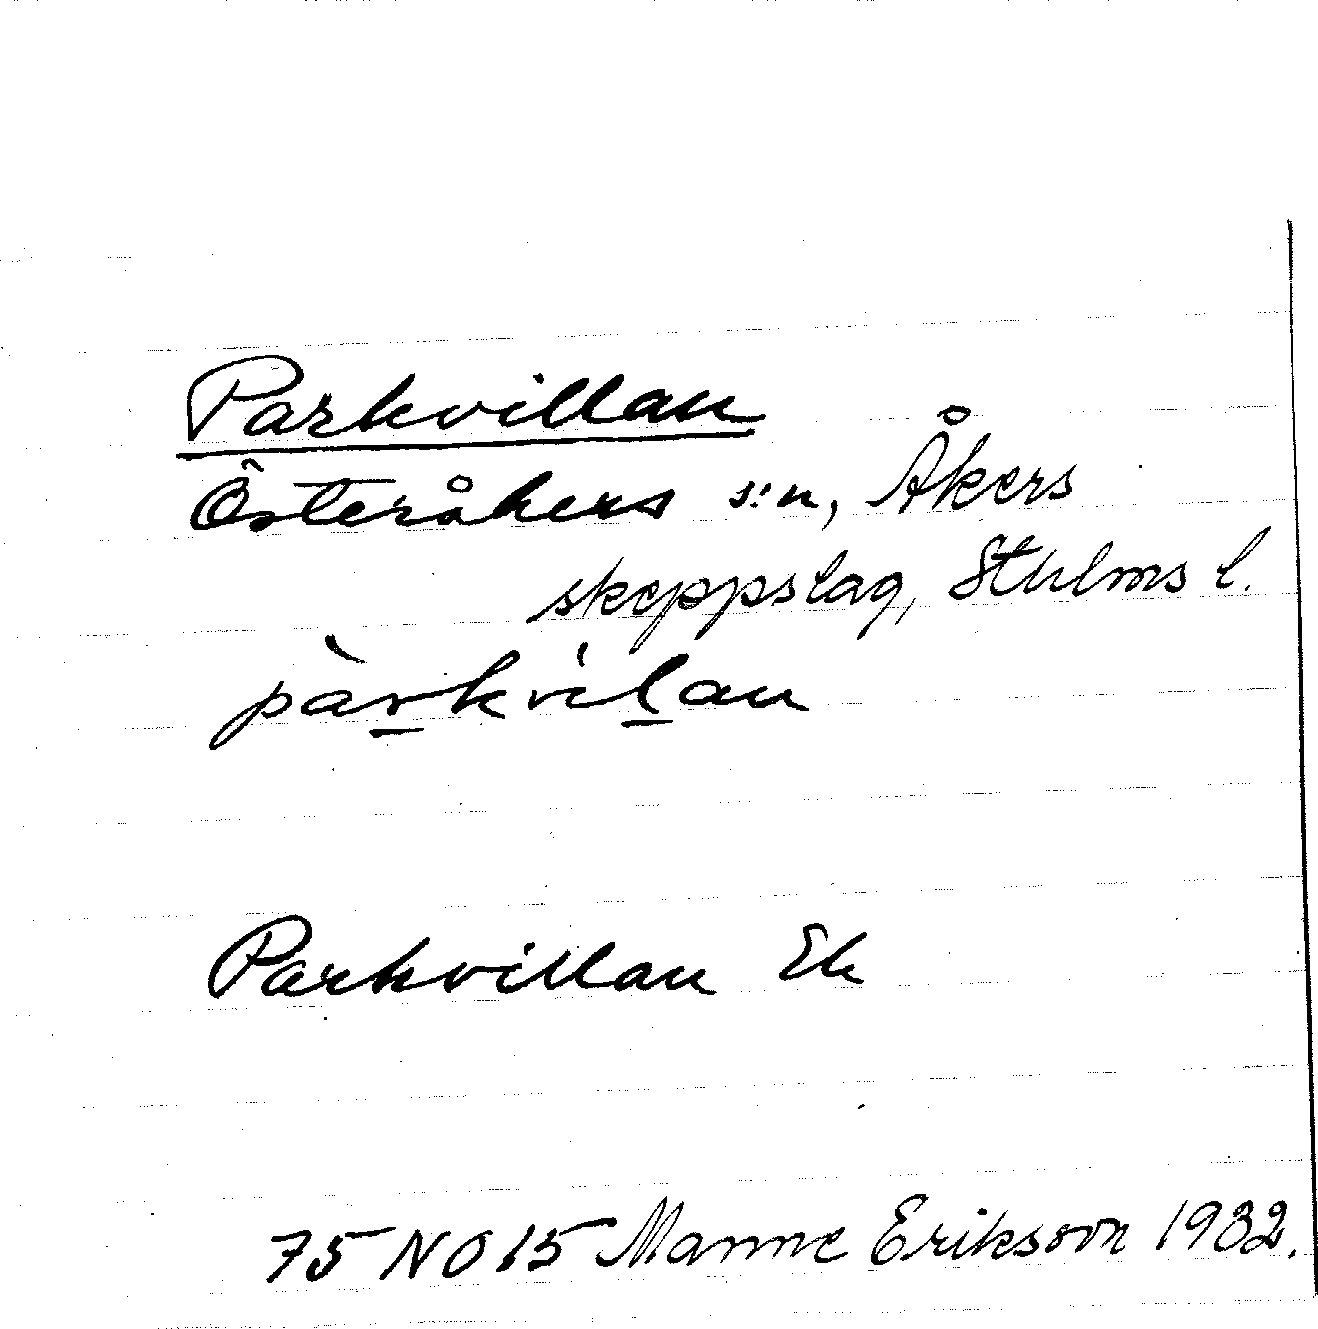 Parkvillan
Österåkers s:n, Åkers
skeppslag, Sthlms l.
pàrkvilan
Parkvillan Ek
75 NO 15 Manne Eriksson 1932.